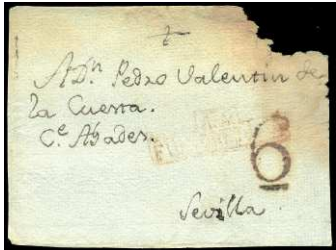 A Dn Pedro Valentin de
la Cuesta.
Ce Abades.
6
Sevilla